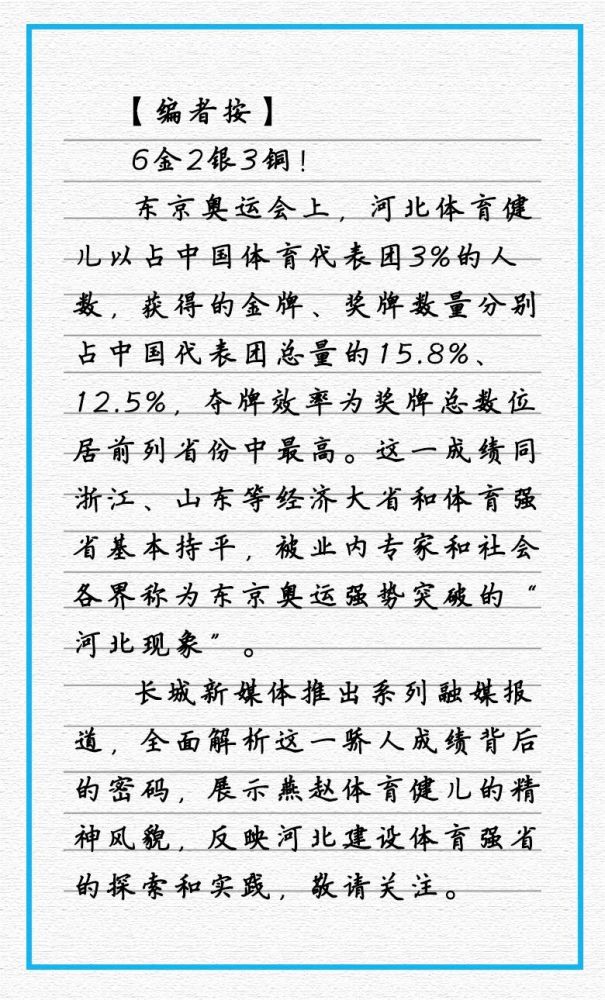 【编者按】
6金2银3铜！
东京奥运会上，河北体育健
儿以占中国体育代表团3%的人
数，获得的金牌、奖牌数量分别
占中国代表团总量的15.8%、
12.5%，夺牌效率为奖牌总数位
居前列省份中最高。这一成绩同
浙江、山东等经济大省和体育强
省基本持平，被业内专家和社会
各界称为东京奥运强势突破的“
河北现象”。
长城新媒体推出系列融媒报
道，全面解析这一骄人成绩背后
的密码，展示燕赵体育健儿的精
神风貌，反映河北建设体育强省
的探索和实践，敬请关注。